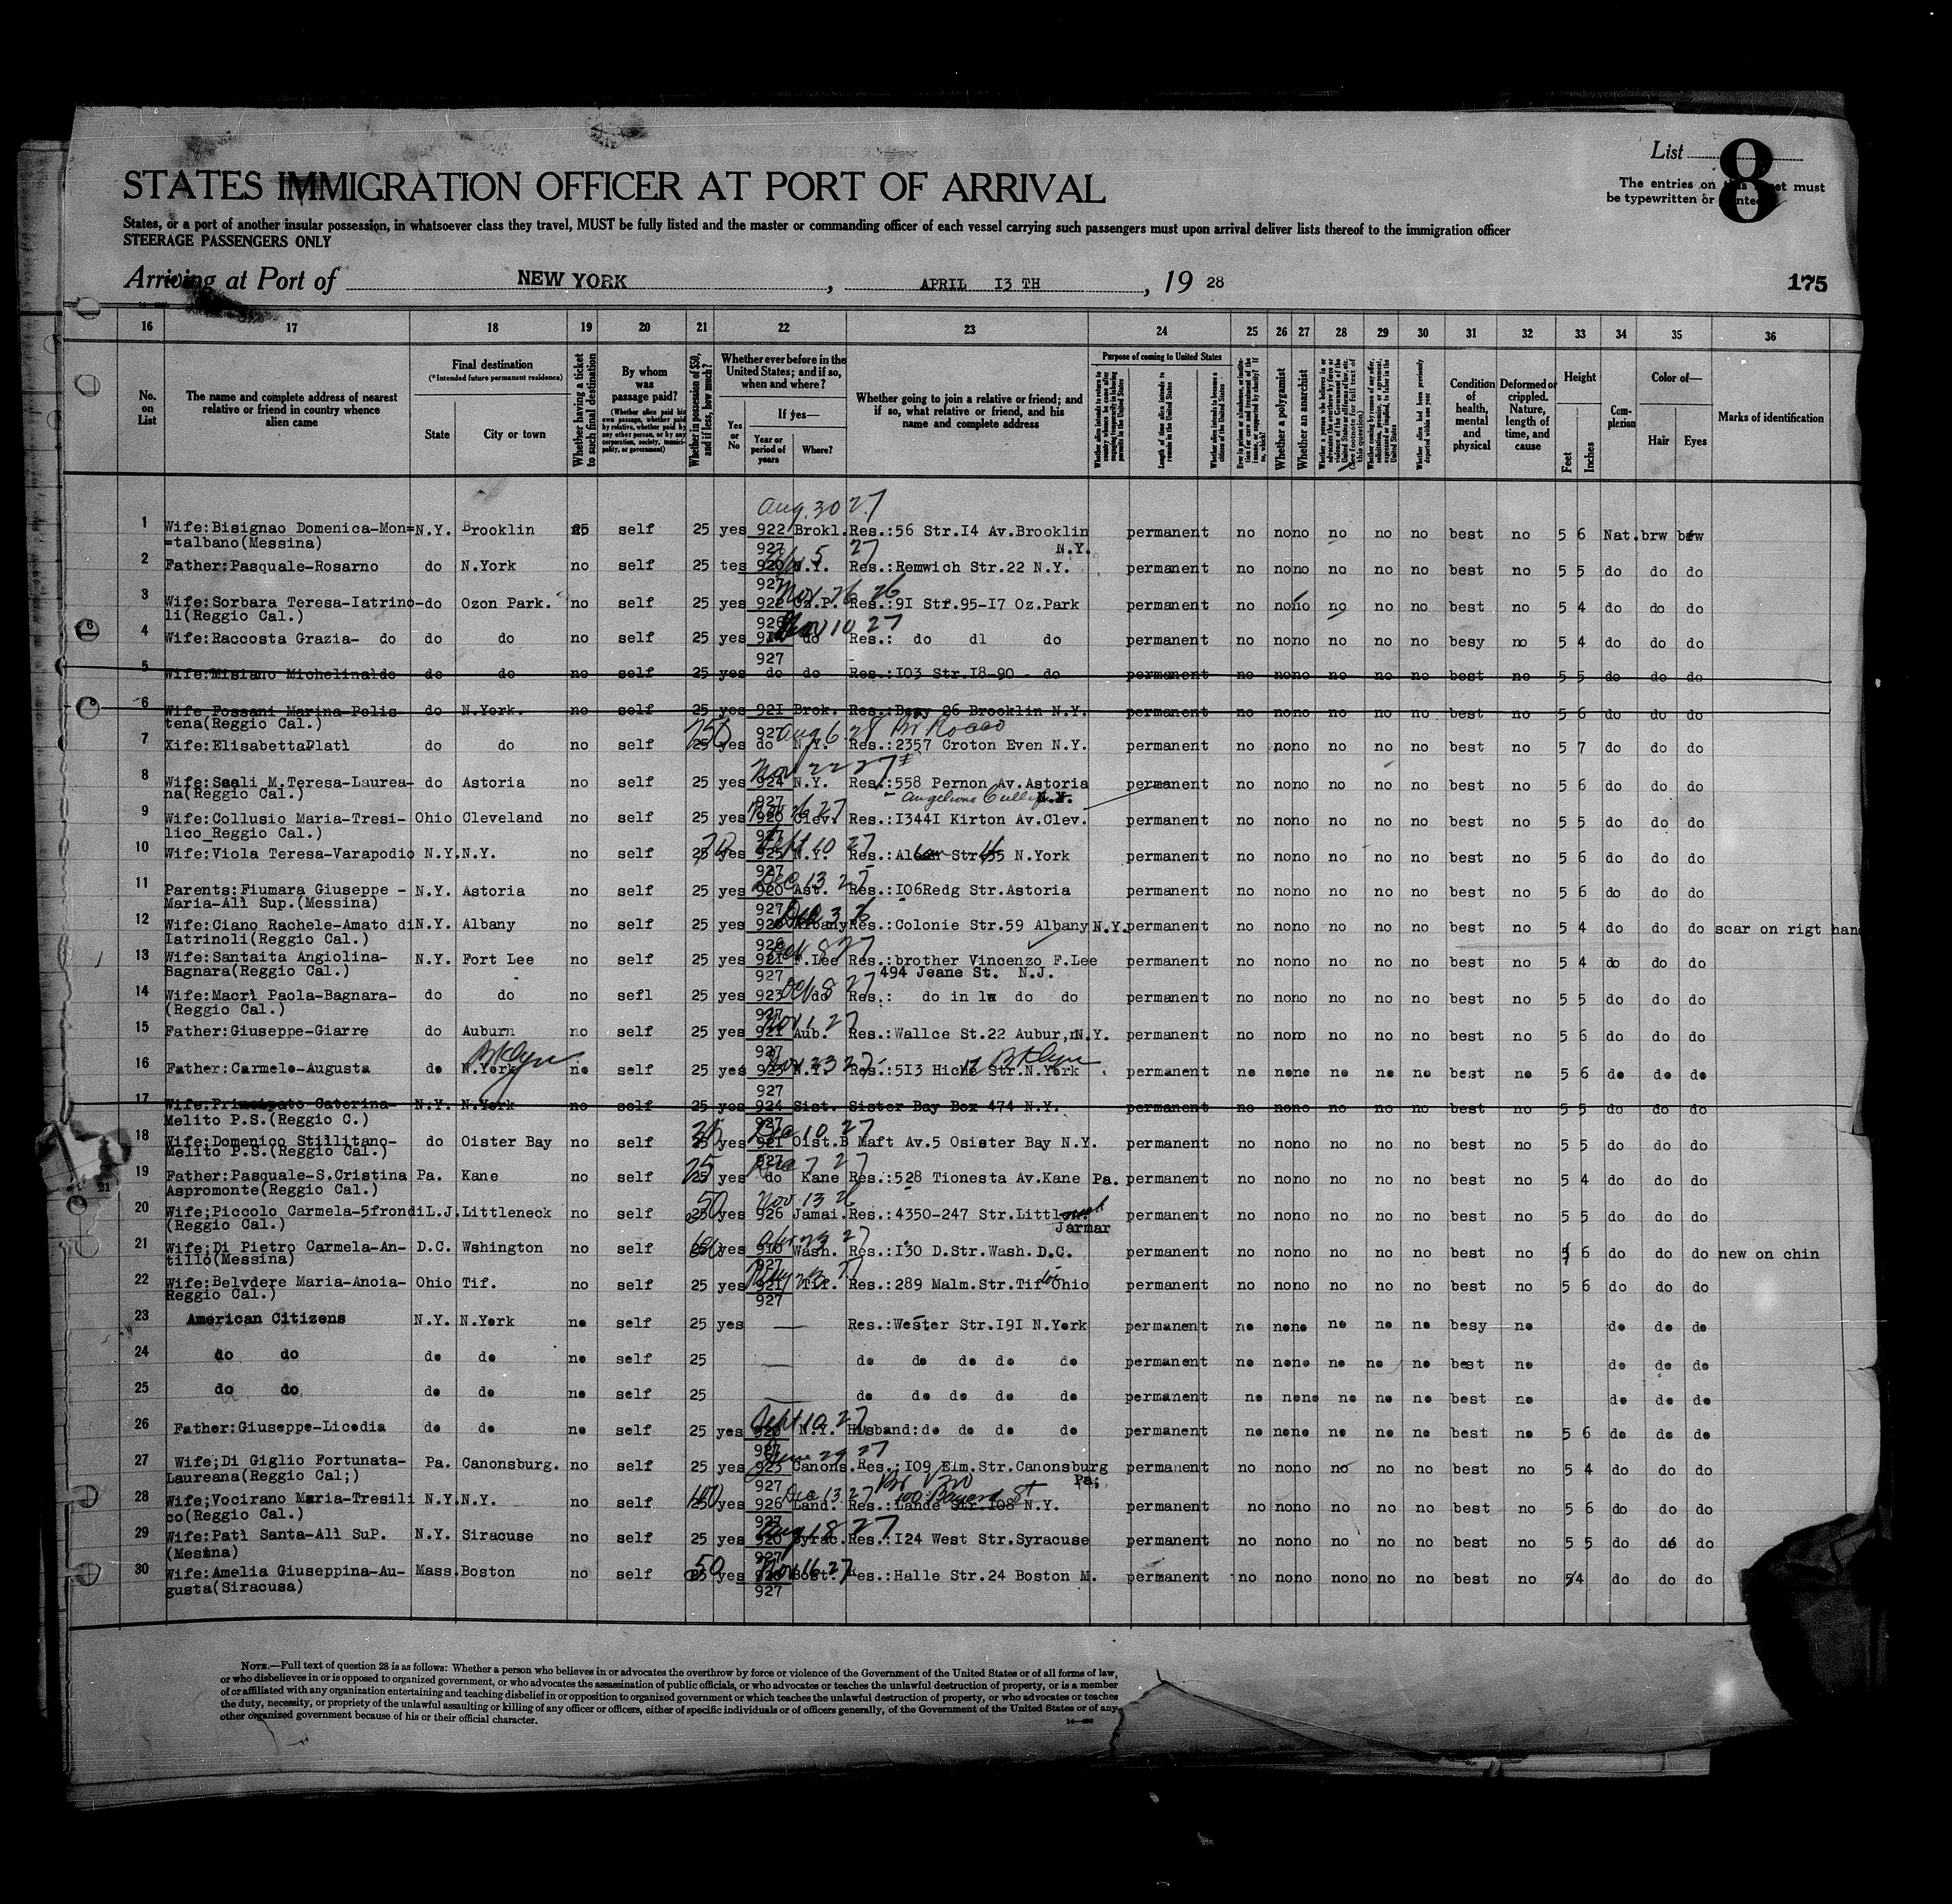 List
8
The entries on this sheet must
be typewritten or printed
STATES IMMIGRATION OFFICER AT PORT OF ARRIVAL
States, or a port of another insular possession, in whatsoever class they travel, MUST be fully listed and the master or commanding officer of each vessel carrying such passengers must upon arrival deliver lists thereof to the immigration officer
STEERAGE PASSENGERS ONLY
Arriving at Port of NEW YORK , APRIL I3 TH , 19 28
175
16 17 18 19 20 21 22 23 24 25 26 27 28 29 30 31 32 33 34 35 36
No. on List
The name and complete address of nearest relative or friend in country whence alien came
Final destination
(*Intended future permanent residence)
State
City or town
Whether having a ticket to such final destination
By whom was passage paid?
(Whether alien paid his own passage, whether paid by relative, whether paid by any other person, or by any corporation, society, municipality, or government)
Whether in possession of $50, and if less, how much?
Whether ever before in the United States; and if so, when and where?
Yes or No
If yes—
Year or period of years
Where?
Whether going to join a relative or friend; and if so, what relative or friend, and his name and complete address
Purpose of coming to United States
Length of time alien intends to remain in the United States
Whether alien intends to become a citizen of the United States
Whether a polygamist
Whether an anarchist
Condition of health, mental and physical
Deformed or crippled. Nature, length of time, and cause
Height
Feet
Inches
Complexion
Color of—
Hair
Eyes
Marks of identification
Aug. 30 27
1 Wife:Bisignao Domenica-Mon= N.Y. Brooklin self 25 yes 922 Brokl. Res.:56 Str.I4 Av.Brooklin permanent no no no no no no best no 5 6 Nat. brw
=talbano(Messina) 927 N.Y.
2 Father:Pasquale-Rosarno do N.York no self 25 tes 920 N.Y. Res.:Remwich Str.22 N.Y. permanent no no no no no no best no 5 5 do do do
927 Nov. 26 26
3 Wife:Sorbara Teresa-Iatrino- do Ozon Park. no self 25 yes 922 Oz.P. Res.:9I Str.95-I7 Oz.Park permanent no no no no no no best no 5 4 do do do
li(Reggio Cal.) 926 Nov 10 27
4 Wife:Raccosta Grazia- do do do no self 25 yes do Res.: do dl do permanent no no no no no no besy no 5 4 do do do
927
5 Wife:Misiano Michelina do do do no self 25 yes do do Res.:I03 Str.I8-90 - do permanent no no no no no no best no 5 5 do do do
6 Wife Fossani Marina-Polis do N.York. no self 25 yes 92I Brok. Res.: 26 Brooklin N.Y. permanent no no no no no no best no 5 6 do do do
tena(Reggio Cal.) 927 Aug 6 28 Br Rocco
7 Xife:ElisabettaPlatì do do no self 25 yes do N.Y. Res.:2357 Croton Even N.Y. permanent no no no no no no best no 5 7 do do do
Nov 22 27
8 Wife:Scali M.Teresa-Laurea- do Astoria no self 25 yes 924 N.Y. Res.:558 Pernon Av.Astoria permanent no no no no no no best no 5 6 do do do
na(Reggio Cal.) 927 N.Y.
9 Wife:Collusio Maria-Tresi- Ohio Cleveland no self 25 yes 920 Clev. Res.:I344I Kirton Av.Clev. permanent no no no no no no best no 5 5 do do do
lico_Reggio Cal.) 927 Sept 10 27
10 Wife:Viola Teresa-Varapodio N.Y. N.Y. no self 25 yes 925 N.Y. Res.: N.York permanent no no no no no no best no 5 6 do do do
927 Dec 13 27
11 Parents:Fiumara Giuseppe - N.Y. Astoria no self 25 yes 920 Ast. Res.:I06Redg Str.Astoria permanent no no no no no no best no 5 6 do do do
Maria-Alì Sup.(Messina) 927 Dec 3 26
12 Wife:Ciano Rachele-Amato di N.Y. Albany no self 25 yes Albany Res.:Colonie Str.59 Albany N.Y. permanent no no no no no no best no 5 4 do do do scar on rigt hand
Iatrinoli(Reggio Cal.) 926 Oct 8 27
13 Wife:Santaita Angiolina- N.Y. Fort Lee no self 25 yes 921 F.Lee Res.:brother Vincenzo F.Lee permanent no no no no no no best no 5 4 do do do
Bagnara(Reggio Cal.) 927 494 Jeane St. N.J.
Oct 8 27
14 Wife:Macrì Paola-Bagnara- do do no sefl 25 yes 923 do Res.: do in do do permanent no no no no no no best no 5 5 do do do
(Reggio Cal.) 927 Nov 1 27
15 Father:Giuseppe-Giarre do Auburn no self 25 yes 921 Aub. Res.:Wallce St.22 Aubur,nN.Y. permanent no no no no no no best no 5 6 do do do
Bklyn 927 Nov 23 27 Bklyn
16 Father:Carmelo-Augusta do N.York no self 25 yes 923 N.Y. Res.:5I3 Hick Str.N.York permanent no no no no no no best no 5 6 do do do
927
17 Wife:Principato Caterina- N.Y. N.York no self 25 yes 924 Sist. Sister Bay Box 474 N.Y. permanent no no no no no no best no 5 5 do do do
Melito P.S.(Reggio C.) 927 Dec 10 27
18 Wife:Domenico Stillitano- do Oister Bay no self yes 921 Oist.B Maft Av.5 Osister Bay N.Y. permanent no no no no no no best no 5 5 do do do
Melito P.S.(Reggio Cal.) 927 7 27
19 Father:Pasquale-S.Cristina Pa. Kane no self 25 yes do Kane Res.:528 Tionesta Av.Kane Pa. permanent no no no no no no best no 5 4 do do do
Aspromonte(Reggio Cal.) 50 Nov 13
20 Wife;Piccolo Carmela-5frondi L.J. Littleneck no self 25 yes 926 Jamai. Res.:4350-247 Str.Littl permanent no no no no no no best no 5 5 do do do
(Reggio Cal.) Jarmar
21 Wife;Di Pietro Carmela-An- D.C. Wshington no self yes 910 Wash. Res.:I30 D.Str.Wash. D.C. permanent no no no no no no best no 5 6 do do do new on chin
tillo(Messina) 927
22 Wife:Belvdere Maria-Anoia- Ohio Tif. no self 25 yes 921 Tif. Res.:289 Malm.Str.Tif Ohio permanent no no no no no no best no 5 6 do do do
Reggio Cal.) 927
23 American Citizens N.Y. N.York no self 25 yes — Res.:Wester Str.I9I N.York permanent no no no no no no besy no do do do
24 do do do do no self 25 — do do do do do permanent no no no no no no best no do do do
25 do do do do no self 25 — do do do do do permanent no no no no no no best no do do do
Sept 10 27
26 Father:Giuseppe-Licodia do do no self 25 yes N.Y. Husband:do do do do permanent no no no no no no best no 5 6 do do do
927 June 29 27
27 Wife;Di Giglio Fortunata- Pa. Canonsburg. no self 25 yes 923 Canons. Res.;I09 Eim.Str.Canonsburg permanent no no no no no no best no 5 4 do do do
Laureana(Reggio Cal;) 927 Pa;
100 Dec 13 27 100 Bayard St
28 Wife;Vocirano Maria-Tresili N.Y. N.Y. no self 25 yes 926 Land. Res.:Lande Str.I08 N.Y. permanent no no no no no no best no 5 6 do do do
co(Reggio Cal.) 927 Aug 18 27
29 Wife:Patì Santa-Alì SuP. N.Y. Siracuse no self 25 yes 920 Syrac. Res.:I24 West Str.Syracuse permanent no no no no no no best no 5 5 do do do
(Mesina) 927 50 Nov 16 27
30 Wife:Amelia Giuseppina-Au- Mass. Boston no self 25 yes Bost. Res.:Halle Str.24 Boston M. permanent no no no nono no no best no 54 do do do
gusta(Siracusa) 927
NOTE.—Full text of question 28 is as follows: Whether a person who believes in or advocates the overthrow by force or violence of the Government of the United States or of all forms of law,
or who disbelieves in or is opposed to organized government, or who advocates the assassination of public officials, or who advocates or teaches the unlawful destruction of property, or is a member
of or affiliated with any organization entertaining and teaching disbelief in or opposition to organized government or which teaches the unlawful destruction of property, or who advocates or teaches
the duty, necessity, or propriety of the unlawful assaulting or killing of any officer or officers, either of specific individuals or of officers generally, of the Government of the United States or of any
other organized government because of his or their official character.